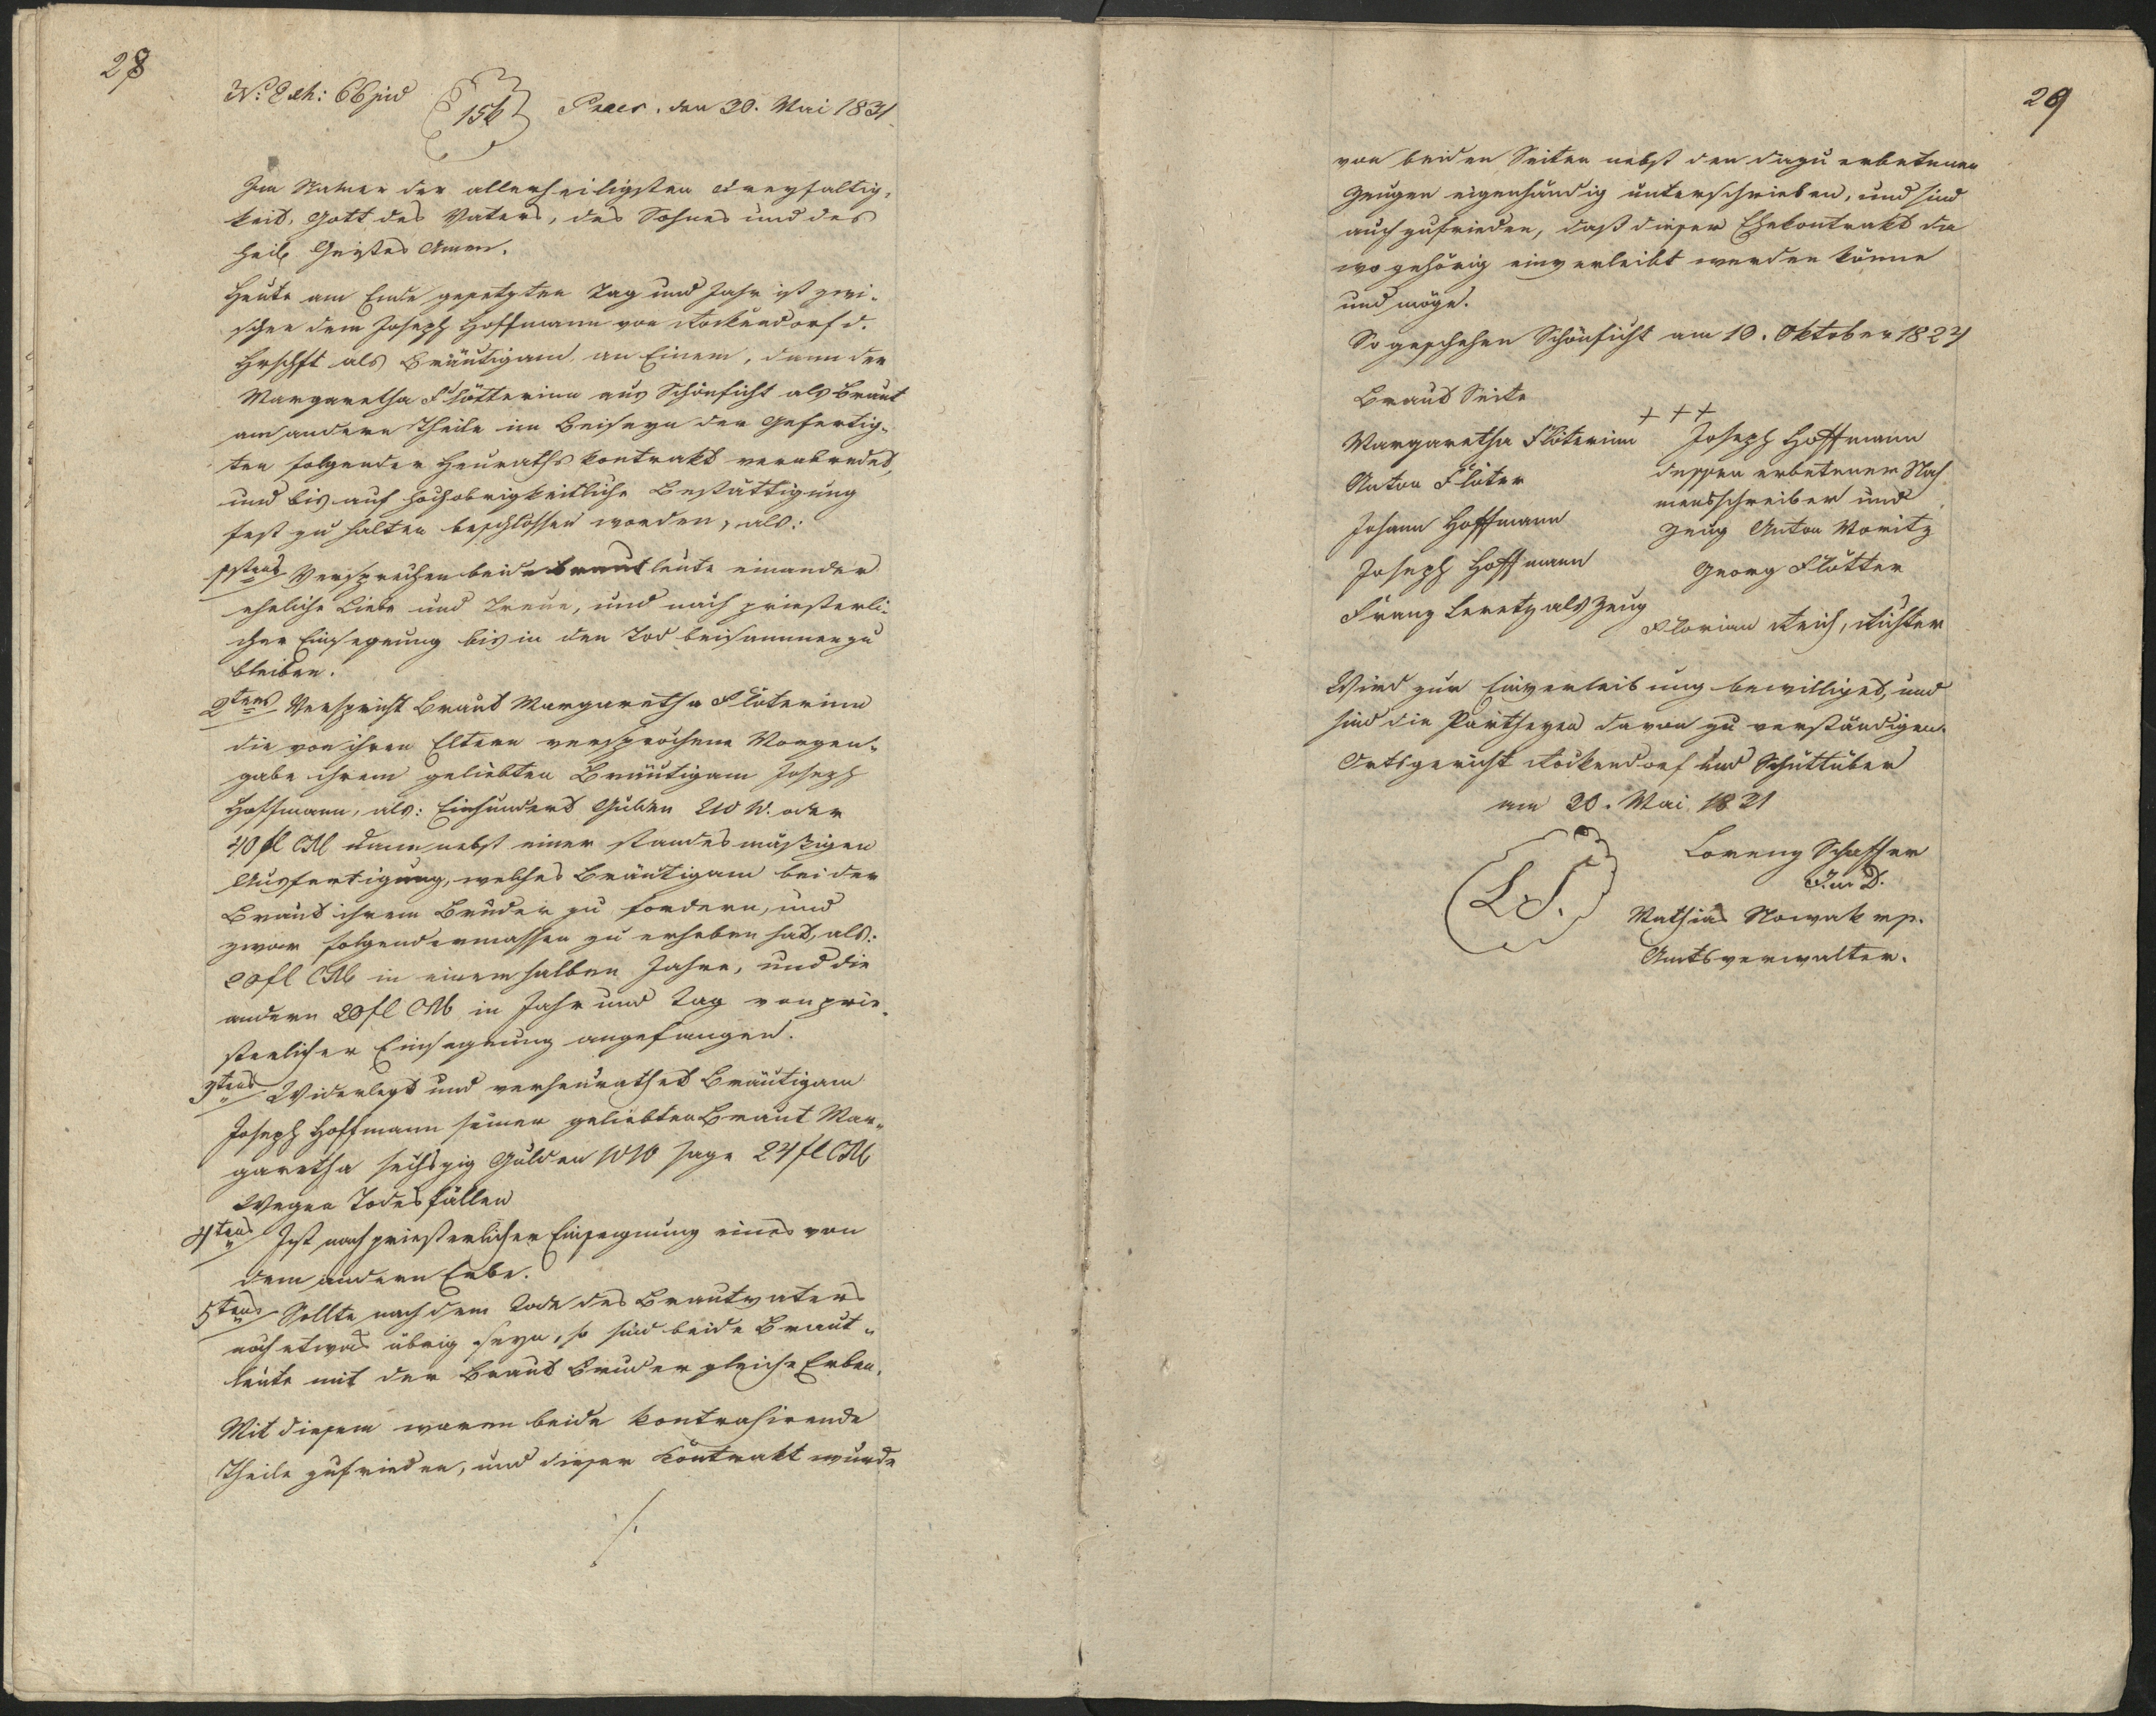 28
N: Exh: 66 jud 156 Praes. den 30. Mai 1831
Im Namen der allerheiligsten Dreyfaltig-
keit, Gott des Vaters, des Sohnes und des
heil. Geistes Amen.
Heute am Ende gesetzten Tag und Jahr ist zwi-
schen dem Joseph Hoffmann von Rockendorf d.
Hrschft als Bräutigam an Einem, dann der
Margaretha Flötterinn aus Schönficht als Braut
am andern Theile im Beiseyn der Gefertig-
ten folgender Heuraths kontrakt verabredet,
und bis auf hochobrigkeitliche Bestättigung
fest zu halten beschlossen worden, als:
1stens Versprechen beide Brautleute einander
eheliche Liebe und Treue, und nach priesterli-
cher Einsegnung bis in den Tod beisammen zu
bleiben.
2tens Verspricht Braut Margaretha Flöterinn
die von ihren Eltern versprochene Morgen-
gabe ihrem geliebten Bräutigam Joseph
Hoffmann, als: Einhundert Gulden W. W. oder
40 fl CM dann nebst einer standesmäßigen
Ausfertigung, welches Bräutigam bei der
Braut ihrem Bruder zu fordern, und
zwar folgendermassen zu erheben hat, als:
20 fl CM in einem halben Jahre, und die
andern 20 fl CM in Jahr und Tag von prie-
sterlicher Einsegnung angefangen.
3tens Widerlegt und verheurathet Bräutigam
Joseph Hoffmann seiner geliebten Braut Mar-
garetha sechszig Gulden WW sage 24 fl CM
Wegen Todesfällen
4tens Ist nach priesterlicher Einsegnung eines von
dem andern Erbe.
5tens Sollte nach dem Tode des Brautvaters
noch etwas übrig seyn, so sind beide Braut-
leute mit der Braut Bruder gleiche Erben.
Mit diesem waren beide kontrahirende
Theile zufrieden, und dieser Kontrakt wurde
./.
29
von beiden Seiten nebst den dazu erbetenen
Zeugen eigenhändig unterschrieben, und sind
auch zufrieden, daß dieser Ehekontrakt da
wo gehörig einverleibt werden könne
und möge.
So geschehen Schönficht am 10. Oktober 1824
Braut Seite
Margaretha Flöterinn +++ Joseph Hoffmann
Anton Flöter dessen erbetener Nah
Johann Hoffmann mensschreiber und
Joseph Hoffmann Zeug Anton Moritz
Franz Leretz als Zeug Georg Flötter
Florian Reich, Richter
Wird zur Einverleibung bewilliget, und
sind die Partheyen davon zu verständigen.
Ortsgericht Rockendorf und Schüttüber
am 30. Mai 1831
L. S.
Lorenz Schaffer
Mathias Nowak mp.
Amtsverwalter.